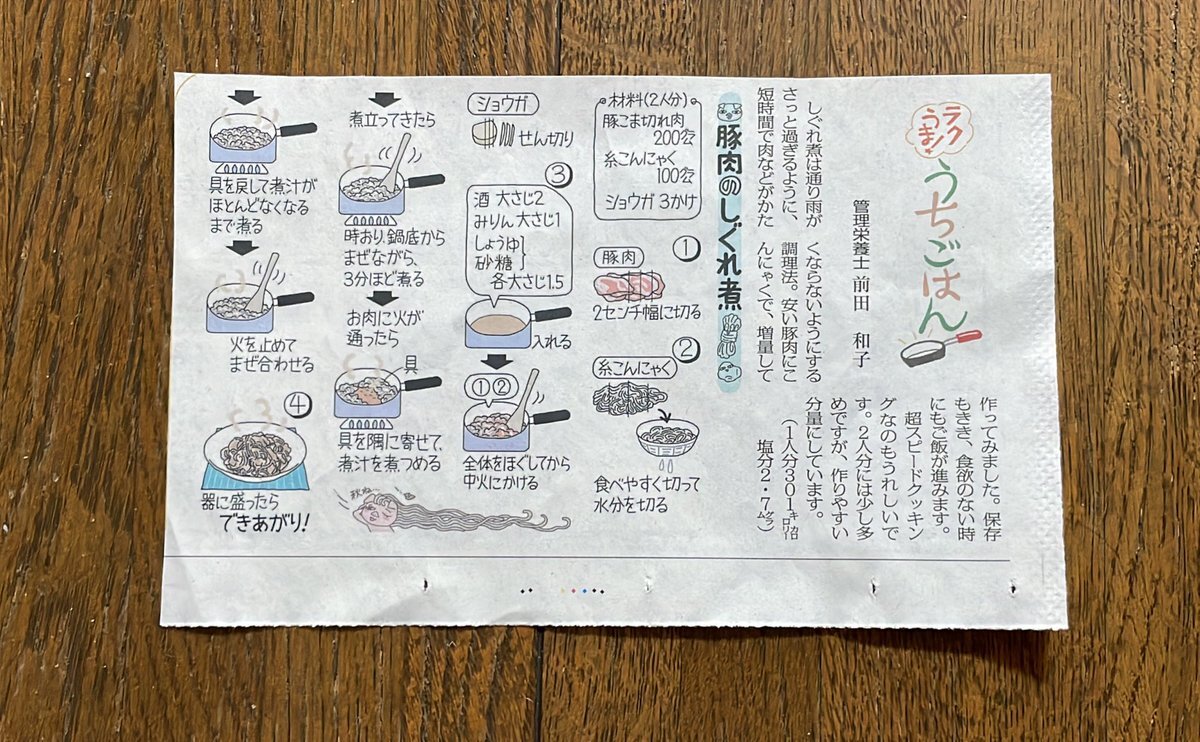 ラク
うま!
うちごはん
管理栄養士 前田 和子
しぐれ煮は通り雨が
さっと過ぎるように、
短時間で肉などがかた
くならないようにする
調理法。安い豚肉にこ
んにゃくで、増量して
作ってみました。保存
もきき、食欲のない時
にもご飯が進みます。
超スピードクッキン
グなのもうれしいで
す。2人分には少し多
めですが、作りやすい
分量にしています。
(1人分301キロカロリー
塩分2・7グラム)
豚肉のしぐれ煮
材料(2人分)
豚こま切れ肉
200㌘
糸こんにゃく
100㌘
ショウガ 3かけ
①
豚肉
2センチ幅に切る
②
糸こんにゃく
食べやすく切って
水分を切る
ショウガ
せん切り
③
酒 大さじ2
みりん 大さじ1
しょうゆ
砂糖
各大さじ1.5
入れる
①②
全体をほぐしてから
中火にかける
煮立ってきたら
時おり、鍋底から
まぜながら、
3分ほど煮る
お肉に火が
通ったら
具
具を隅に寄せて、
煮汁を煮つめる
具を戻して煮汁が
ほとんどなくなる
まで煮る
火を止めて
まぜ合わせる
④
器に盛ったら
できあがり!